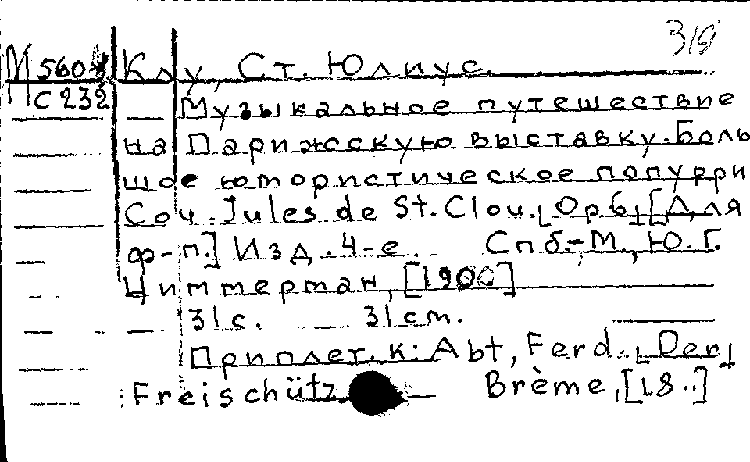 319
М 560/ Клу, Ст. Юлиус.
С 232
Музыкальное путешествие
на Парижскую выставку. Боль
шое юмористическое попурри
Соч. Jules de St. Clou. [Op. 6] [Для
ф-п.] Изд. 4-е. Спб.-М., Ю.Г.
Циммерман, [1900]
31 с. 31 cm.
Приплет. к: Abt, Ferd. [Der]
Freischütz Brème, [18..]